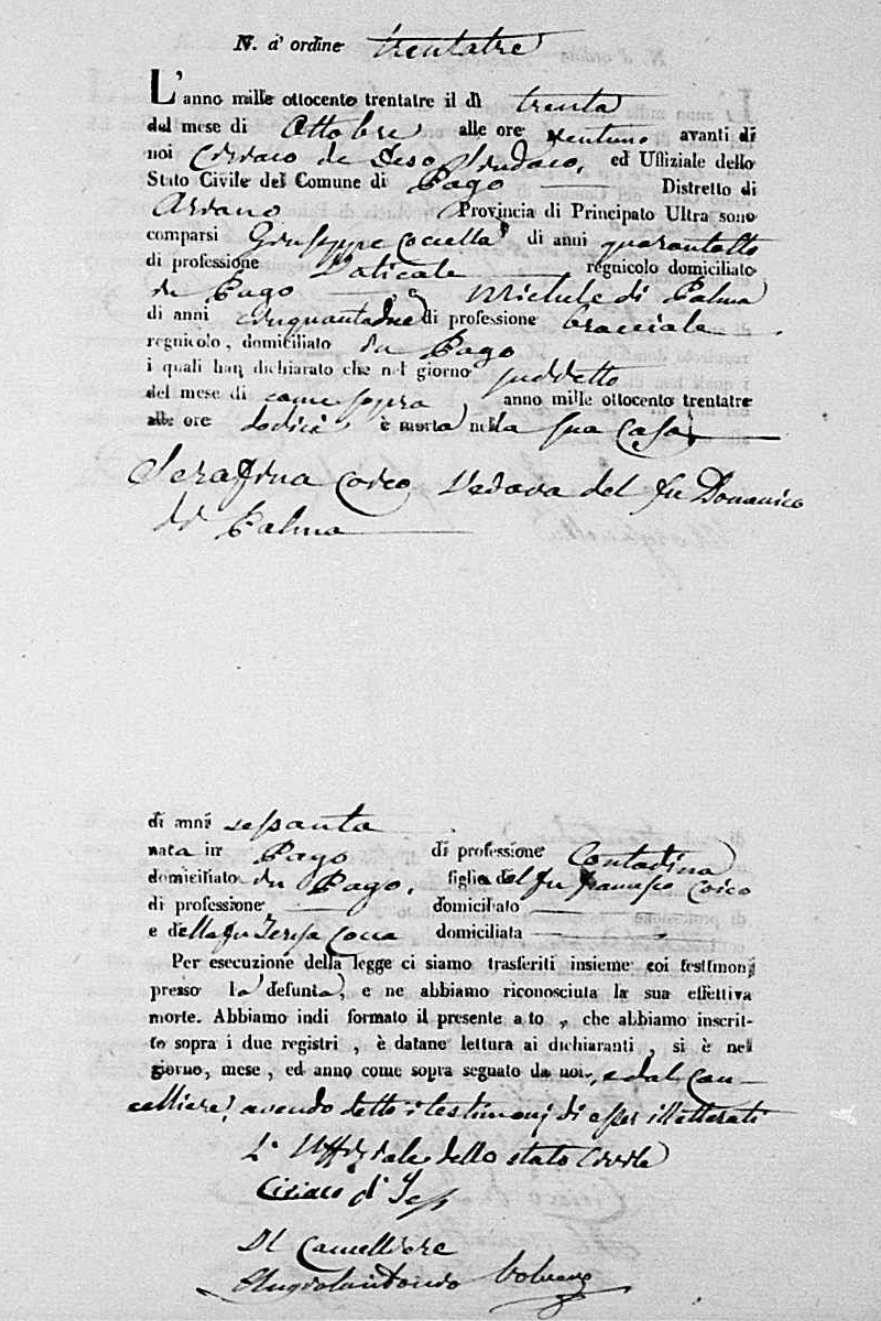 N. d' ordine trentatre
L'anno mille ottocento trentatre il dì trenta
del mese di Ottobre alle ore ventuno avanti di
noi Ciriaco de Sindaco, ed Uffiziale dello
Stato Civile del Comune di Pago Distretto di
Ariano Provincia di Principato Ultra sono
comparsi Giuseppe Coccella di anni quarantotto
di professione Vaticale regnicolo domiciliato
in Pago e Michele di Palma
di anni cinquantadue di professione bracciale
regnicolo, domiciliato in Pago
i quali han dichiarato che nel giorno suddetto
del mese di come sopra anno mille ottocento trentatre
alle ore dodici è morta nella sua Casa
Serafina Coico Vedova del fu Domenico
di Palma
di anni sessanta
nata in Pago di professione Contadina
domiciliato in Pago, figlia del fu Francesco Coico
di professione domiciliato
e della fu Teresa domiciliata
Per esecuzione della legge ci siamo trasferiti insieme coi testimonj
presso la defunta, e ne abbiamo riconosciuta la sua effettiva
morte. Abbiamo indi formato il presente a to, che abbiamo inscrit-
to sopra i due registri, è datane lettura ai dichiaranti, si è nel
giorno, mese, ed anno come sopra segnato da noi, e dal Can-
celliere, avendo detto i testimonj di esser illetterati
L' Uffiziale dello stato Civile
Ciriaco
Il Cancelliere